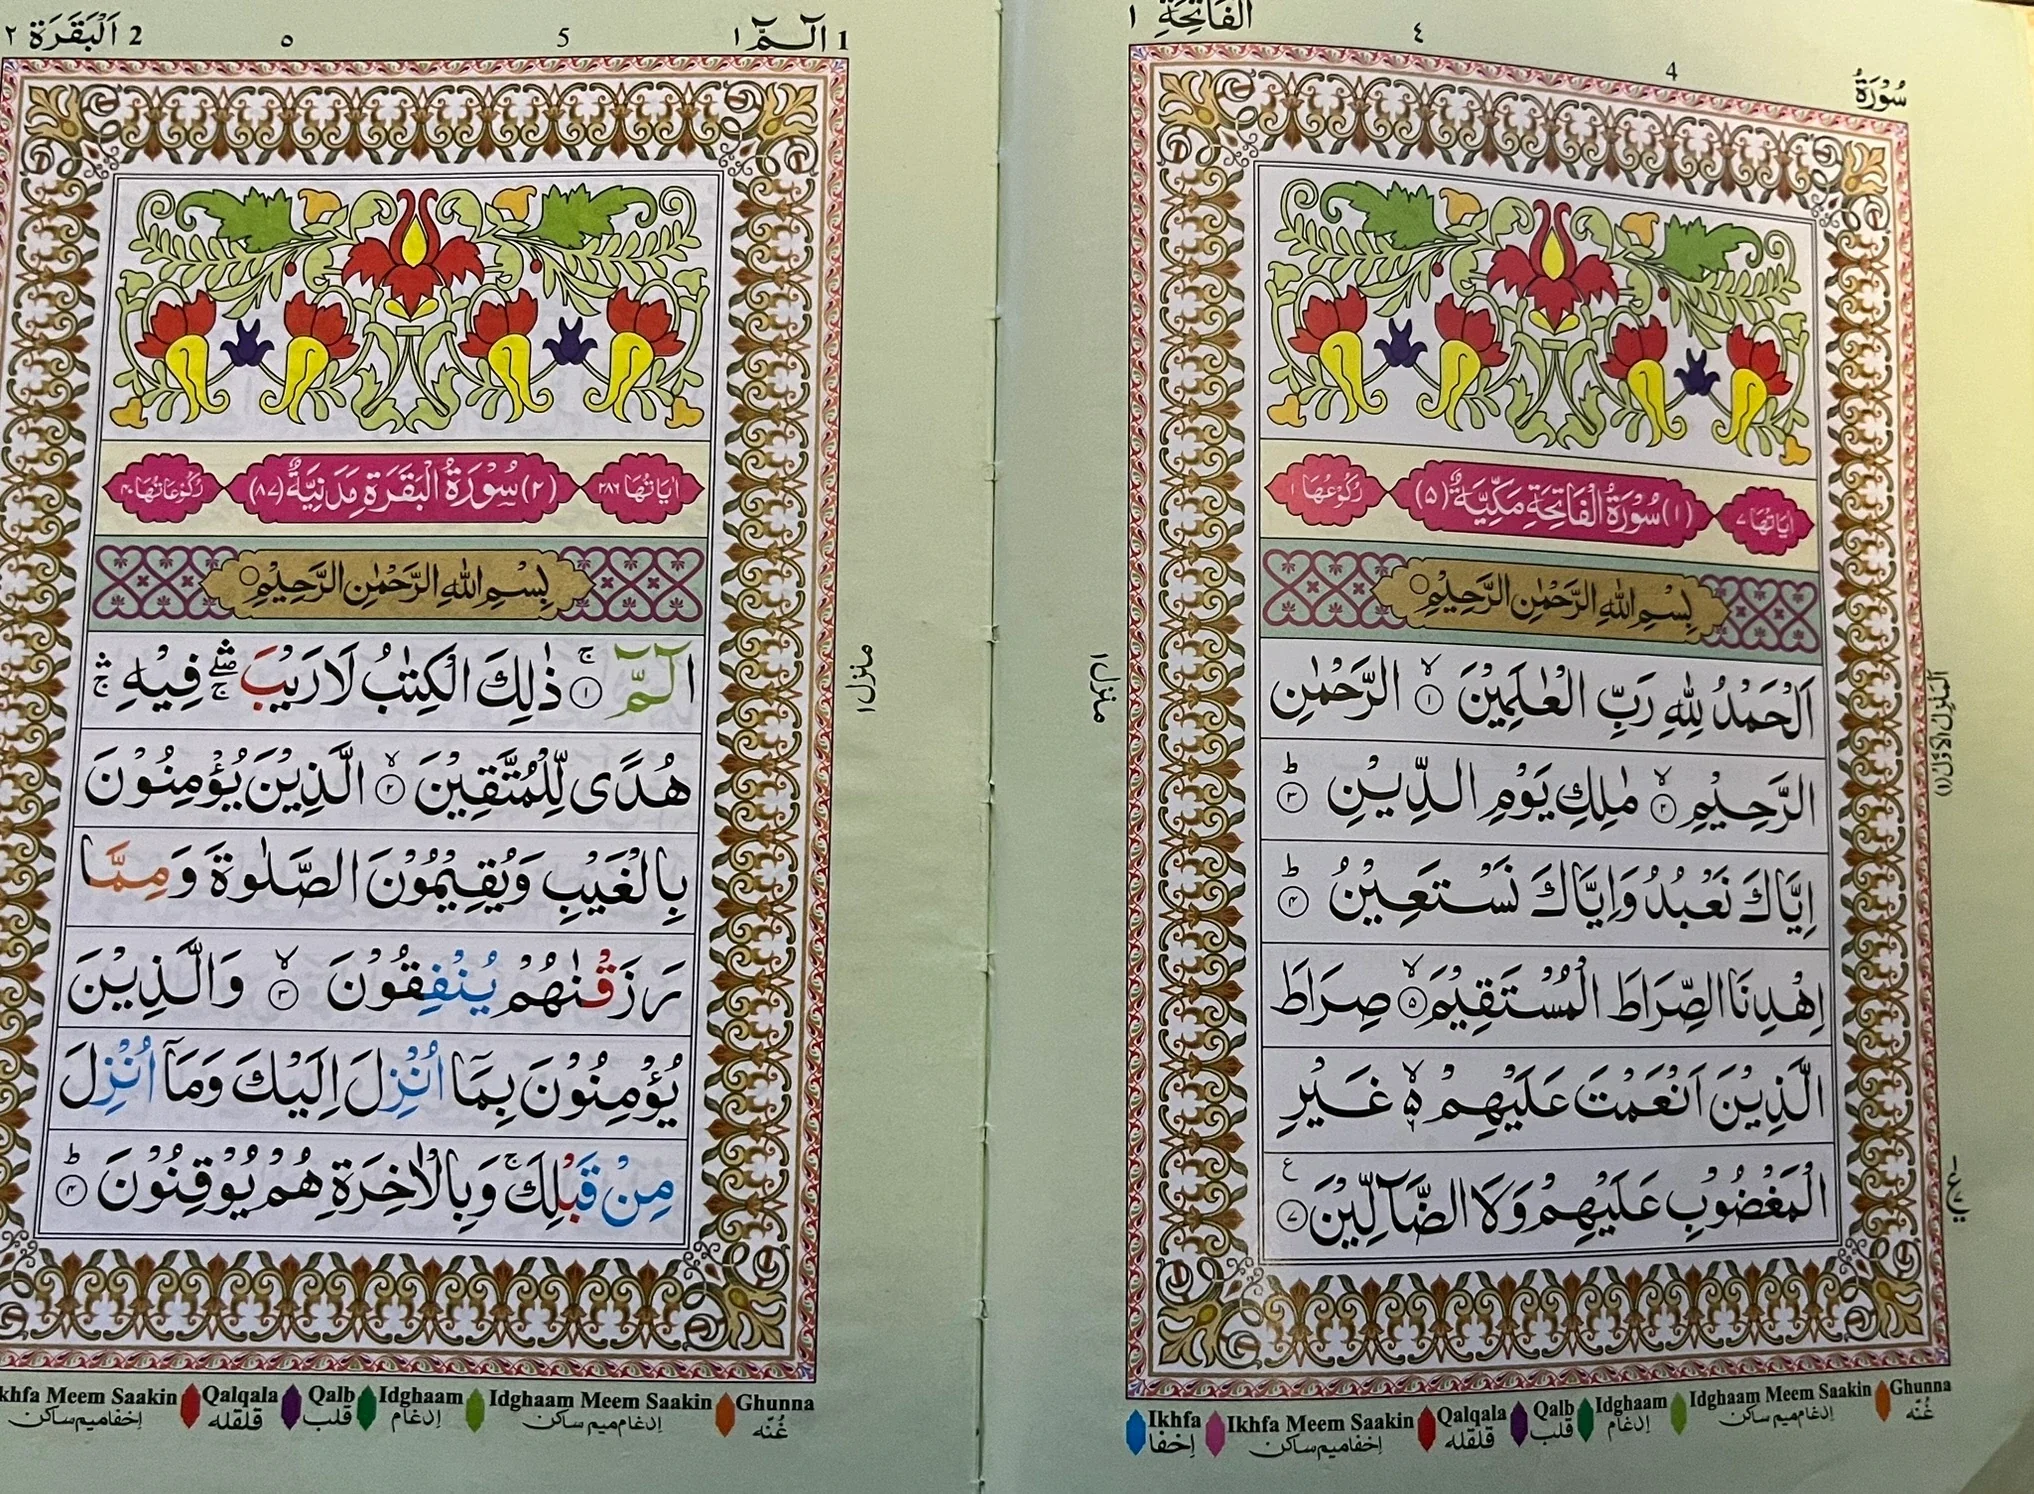 سُوْرَةُ
4
٤
الْفَاتِحَةِ ١
اٰيَاتُهَا ٧
(١) سُوْرَةُ الْفَاتِحَةِ مَكِّيَّةٌ (٥)
رُكُوْعُهَا ١
بِسْمِ اللّٰهِ الرَّحْمٰنِ الرَّحِيْمِ
اَلْحَمْدُ لِلّٰهِ رَبِّ الْعٰلَمِيْنَ ۙ﴿١﴾ الرَّحْمٰنِ
الرَّحِيْمِ ۙ﴿٢﴾ مٰلِكِ يَوْمِ الدِّيْنِ ؕ﴿٣﴾
اِيَّاكَ نَعْبُدُ وَاِيَّاكَ نَسْتَعِيْنُ ؕ﴿٤﴾
اِهْدِنَا الصِّرَاطَ الْمُسْتَقِيْمَ ۙ﴿٥﴾ صِرَاطَ
الَّذِيْنَ اَنْعَمْتَ عَلَيْهِمْ ۙ۬ۦ غَيْرِ
الْمَغْضُوْبِ عَلَيْهِمْ وَلَا الضَّآلِّيْنَ ﴿٧﴾ ع
منزل ١
اَلْمَنْزِلُ الْاَوَّلُ (١)
Ikhfa
اِخفا
Ikhfa Meem Saakin
اِخفا میم ساکن
Qalqala
قلقله
Qalb
قلب
Idghaam
اِدغام
Idghaam Meem Saakin
اِدغام میم ساکن
Ghunna
غُنّه
1 الٓمّٓ ١
5
٥
2 اَلْبَقَرَة ٢
اٰيَاتُهَا ٢٨٦
(٢) سُوْرَةُ الْبَقَرَةِ مَدَنِيَّةٌ (٨٧)
رُكُوْعَاتُهَا ٤٠
بِسْمِ اللّٰهِ الرَّحْمٰنِ الرَّحِيْمِ
الٓمّٓ ۚ﴿١﴾ ذٰلِكَ الْكِتٰبُ لَا رَيْبَ ۛۖۚ فِيْهِ ۛۚ
هُدًى لِّلْمُتَّقِيْنَ ۙ﴿٢﴾ الَّذِيْنَ يُؤْمِنُوْنَ
بِالْغَيْبِ وَيُقِيْمُوْنَ الصَّلٰوةَ وَمِمَّا
رَزَقْنٰهُمْ يُنْفِقُوْنَ ۙ﴿٣﴾ وَالَّذِيْنَ
يُؤْمِنُوْنَ بِمَآ اُنْزِلَ اِلَيْكَ وَمَآ اُنْزِلَ
مِنْ قَبْلِكَ ۚ وَبِالْاٰخِرَةِ هُمْ يُوْقِنُوْنَ ؕ﴿٤﴾
منزل ١
khfa Meem Saakin
اِخفا میم ساکن
Qalqala
قلقله
Qalb
قلب
Idghaam
اِدغام
Idghaam Meem Saakin
اِدغام میم ساکن
Ghunna
غُنّه